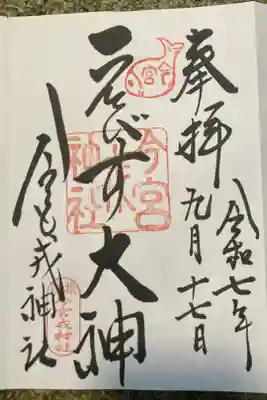 奉拝
令和七年
九月十七日
今宮
ゑびす大神
今宮戎神社
今宮戎神社